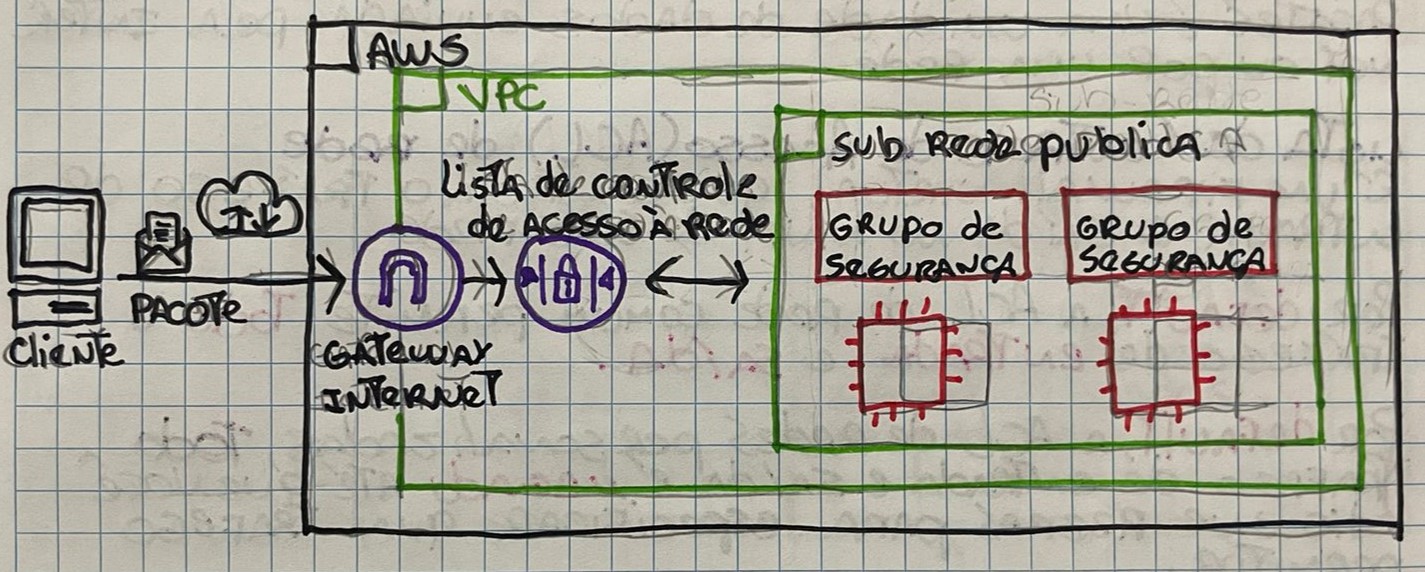 AWS
VPC
Sub Rede publica
Lista de controle
de Acesso à Rede
Grupo de
Segurança
Grupo de
Segurança
Pacote
Cliente
Gateway
Internet